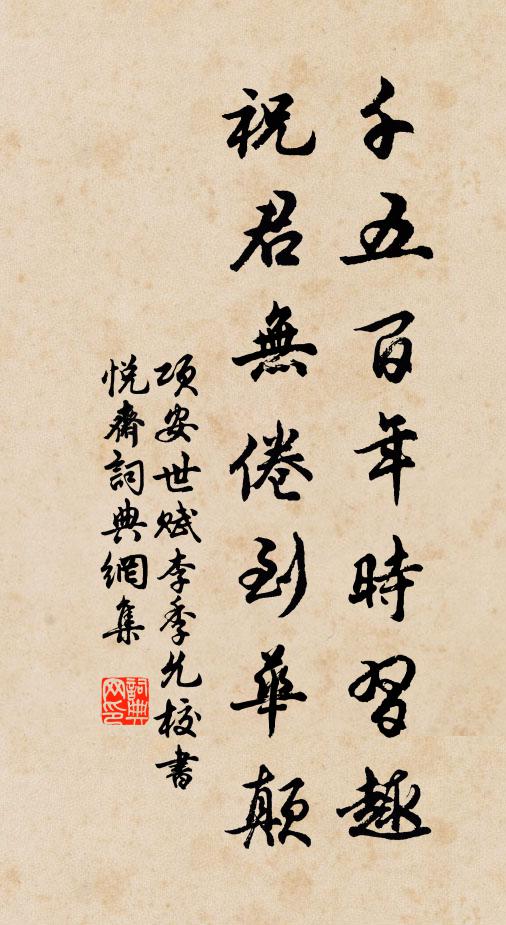 千五百年時習趣
祝君無倦到華顛
項安世賦李季允校書
悅齋詞典網集
詞典網印